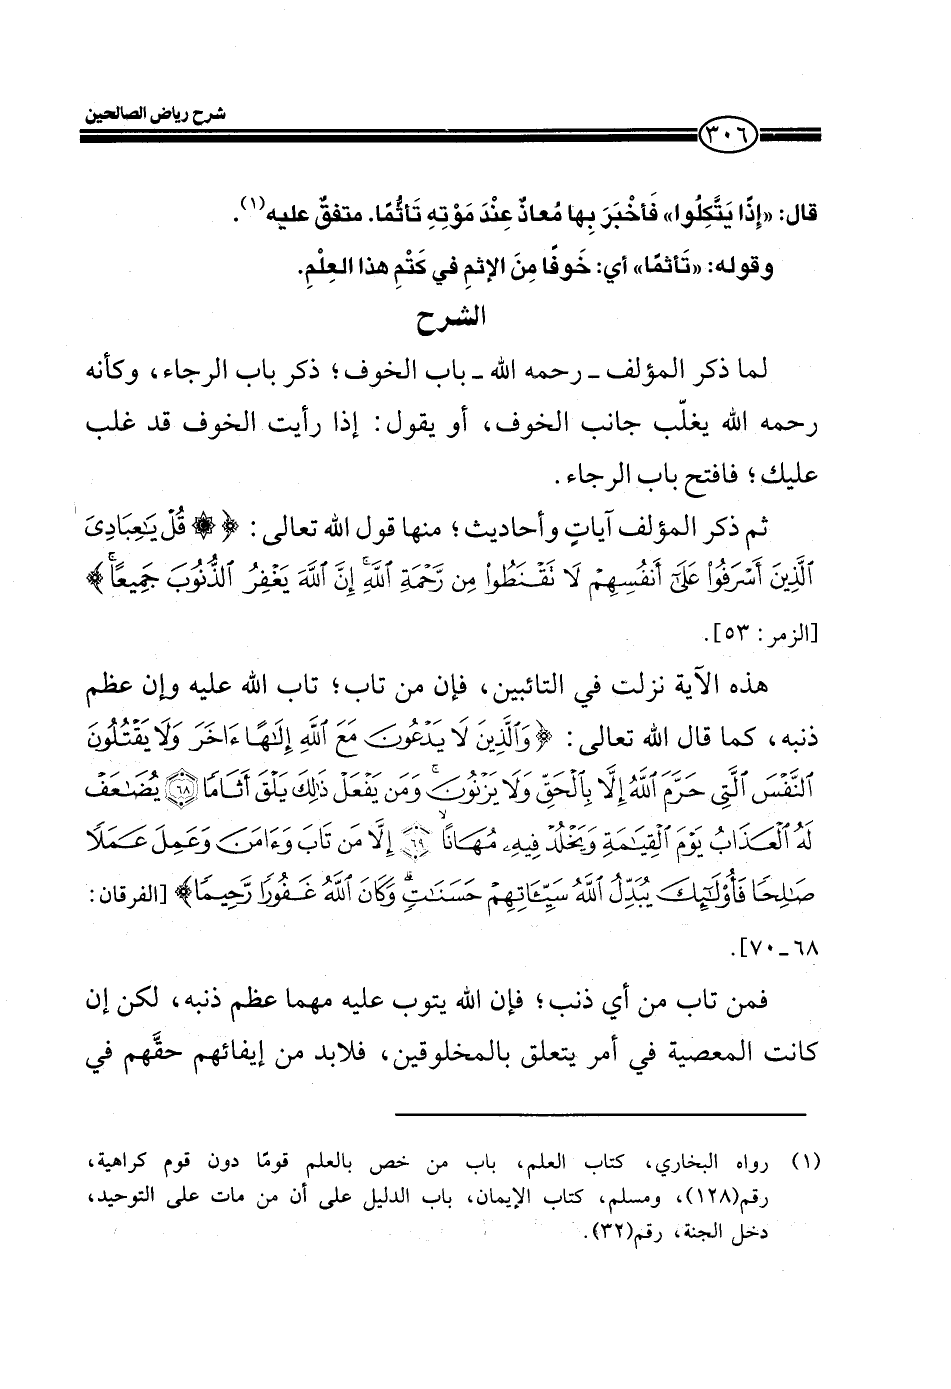 شرح رياض الصالحين
٣٠٦
قال: «إِذًا يَتَّكِلُوا» فَأَخْبَرَ بِها مُعاذٌ عِنْدَ مَوْتِهِ تَأَثُّمًا. متفقٌ عليه(١).
وقوله: «تَأثمًا» أي: خَوفًا مِنَ الإثمِ في كَتْمِ هذا العِلْمِ.
الشرح
لما ذكر المؤلف ـ رحمه الله ـ باب الخوف؛ ذكر باب الرجاء، وكأنه
رحمه الله يغلّب جانب الخوف، أو يقول: إذا رأيت الخوف قد غلب
عليك؛ فافتح باب الرجاء.
ثم ذكر المؤلف آياتٍ وأحاديث؛ منها قول الله تعالى: ﴿۞ قُلْ يَـٰعِبَادِىَ
ٱلَّذِينَ أَسْرَفُوا۟ عَلَىٰٓ أَنفُسِهِمْ لَا تَقْنَطُوا۟ مِن رَّحْمَةِ ٱللَّهِ ۚ إِنَّ ٱللَّهَ يَغْفِرُ ٱلذُّنُوبَ جَمِيعًا ۚ﴾
[الزمر: ٥٣].
هذه الآية نزلت في التائبين، فإن من تاب؛ تاب الله عليه وإن عظم
ذنبه، كما قال الله تعالى: ﴿وَٱلَّذِينَ لَا يَدْعُونَ مَعَ ٱللَّهِ إِلَـٰهًا ءَاخَرَ وَلَا يَقْتُلُونَ
ٱلنَّفْسَ ٱلَّتِى حَرَّمَ ٱللَّهُ إِلَّا بِٱلْحَقِّ وَلَا يَزْنُونَ ۚ وَمَن يَفْعَلْ ذَٰلِكَ يَلْقَ أَثَامًا ٦٨ يُضَـٰعَفْ
لَهُ ٱلْعَذَابُ يَوْمَ ٱلْقِيَـٰمَةِ وَيَخْلُدْ فِيهِۦ مُهَانًا ٦٩ إِلَّا مَن تَابَ وَءَامَنَ وَعَمِلَ عَمَلًا
صَـٰلِحًا فَأُو۟لَـٰٓئِكَ يُبَدِّلُ ٱللَّهُ سَيِّـَٔاتِهِمْ حَسَنَـٰتٍ ۗ وَكَانَ ٱللَّهُ غَفُورًا رَّحِيمًا﴾ [الفرقان:
٦٨ـ٧٠].
فمن تاب من أي ذنب؛ فإن الله يتوب عليه مهما عظم ذنبه، لكن إن
كانت المعصية في أمر يتعلق بالمخلوقين، فلابد من إيفائهم حقَّهم في
(١) رواه البخاري، كتاب العلم، باب من خص بالعلم قومًا دون قوم كراهية،
رقم(١٢٨)، ومسلم، كتاب الإيمان، باب الدليل على أن من مات على التوحيد،
دخل الجنة، رقم(٣٢).